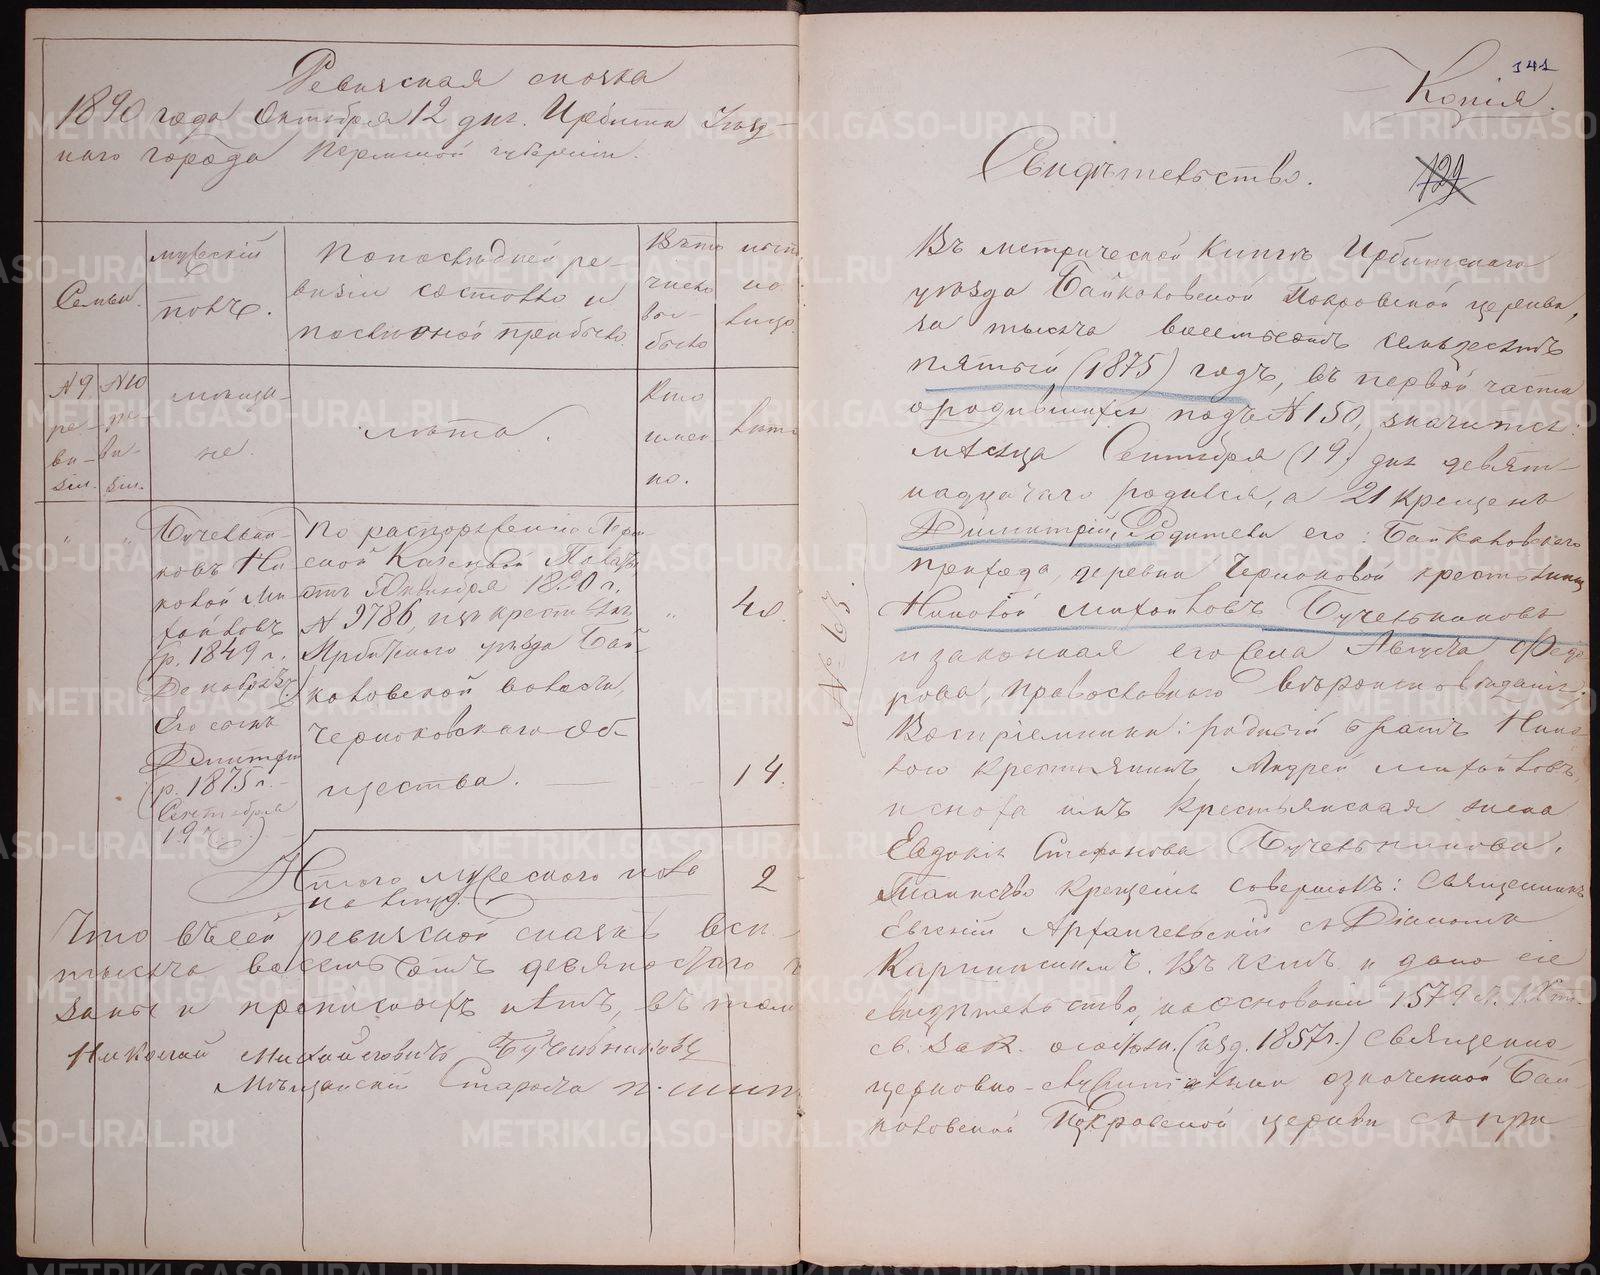 Ревизская сказка
1890 года Октября 12 дня. Ирбита Уезд-
наго города Пермской губернии.
Семьи.
мужескій
полъ.
По последней ре-
визіи состояло и
после оной прибыло
Въ то
число
вы-
было
но
лицо.
№ 9 ре-ви-зіи.
№ 10 ре-ви-зіи.
мѣща-
не.
лѣта.
Кто
имен
но.
лѣта
Бучельни-
ковъ Ни
колай Ми
хайловъ
р. 1849 г.
Декабря
Его сынъ
Дмитрій
(р. 1875 г.
Сентября
19 ч.)
По распоряженію Перм
ской Казенной Палаты
отъ Октября 1890 г.
№ 9786, изъ крестьянъ
Ирбитскаго уѣзда Бай
каловской волости,
Черноковскаго Об-
щества.
40
14.
Итого мужескаго пола
на лицо.
2
Что въ сей ревизской сказкѣ все
тысяча восемьсотъ девяностаго
заны и прописныхъ нѣтъ, въ томъ
Николай Михайловичъ Бучельниковъ
Мѣщанскій Староста
141
Копія.
Свидѣтельство.
129
Въ метрической книгѣ Ирбитскаго
уѣзда Байкаловской Покровской церкви,
за тысяча восемьсотъ семьдесятъ
пятый (1875) годъ, въ первой части
о родившихся подъ № 150, значится:
мѣсяца Сентября (19) дня девят-
надцатаго родился, а 21 крещенъ
Димитрій, Родители его: Байкаловскаго
прихода, деревни Черноковой крестьянинъ
Николай Михайловъ Бучельниковъ
и законная его жена Августа Федо
рова, православнаго вѣроисповѣданія.
Воспріемники: родной братъ Нико
лаю крестьянинъ Андрей Михайловъ,
и сноха имъ крестьянская жена
Евдокія Стефанова Бучельникова.
Таинство крещенія совершилъ: священникъ
Евгеній Архангельскій съ Діаконом
Карпинскимъ. Въ чемъ и дано сіе
свидѣтельство, на основаніи 1579 ст. IX т.
св. зак. о сост. (изд. 1857 г.) священно
церковно-служителями означенной Бай
каловской Покровской церкви съ при
№ 63.